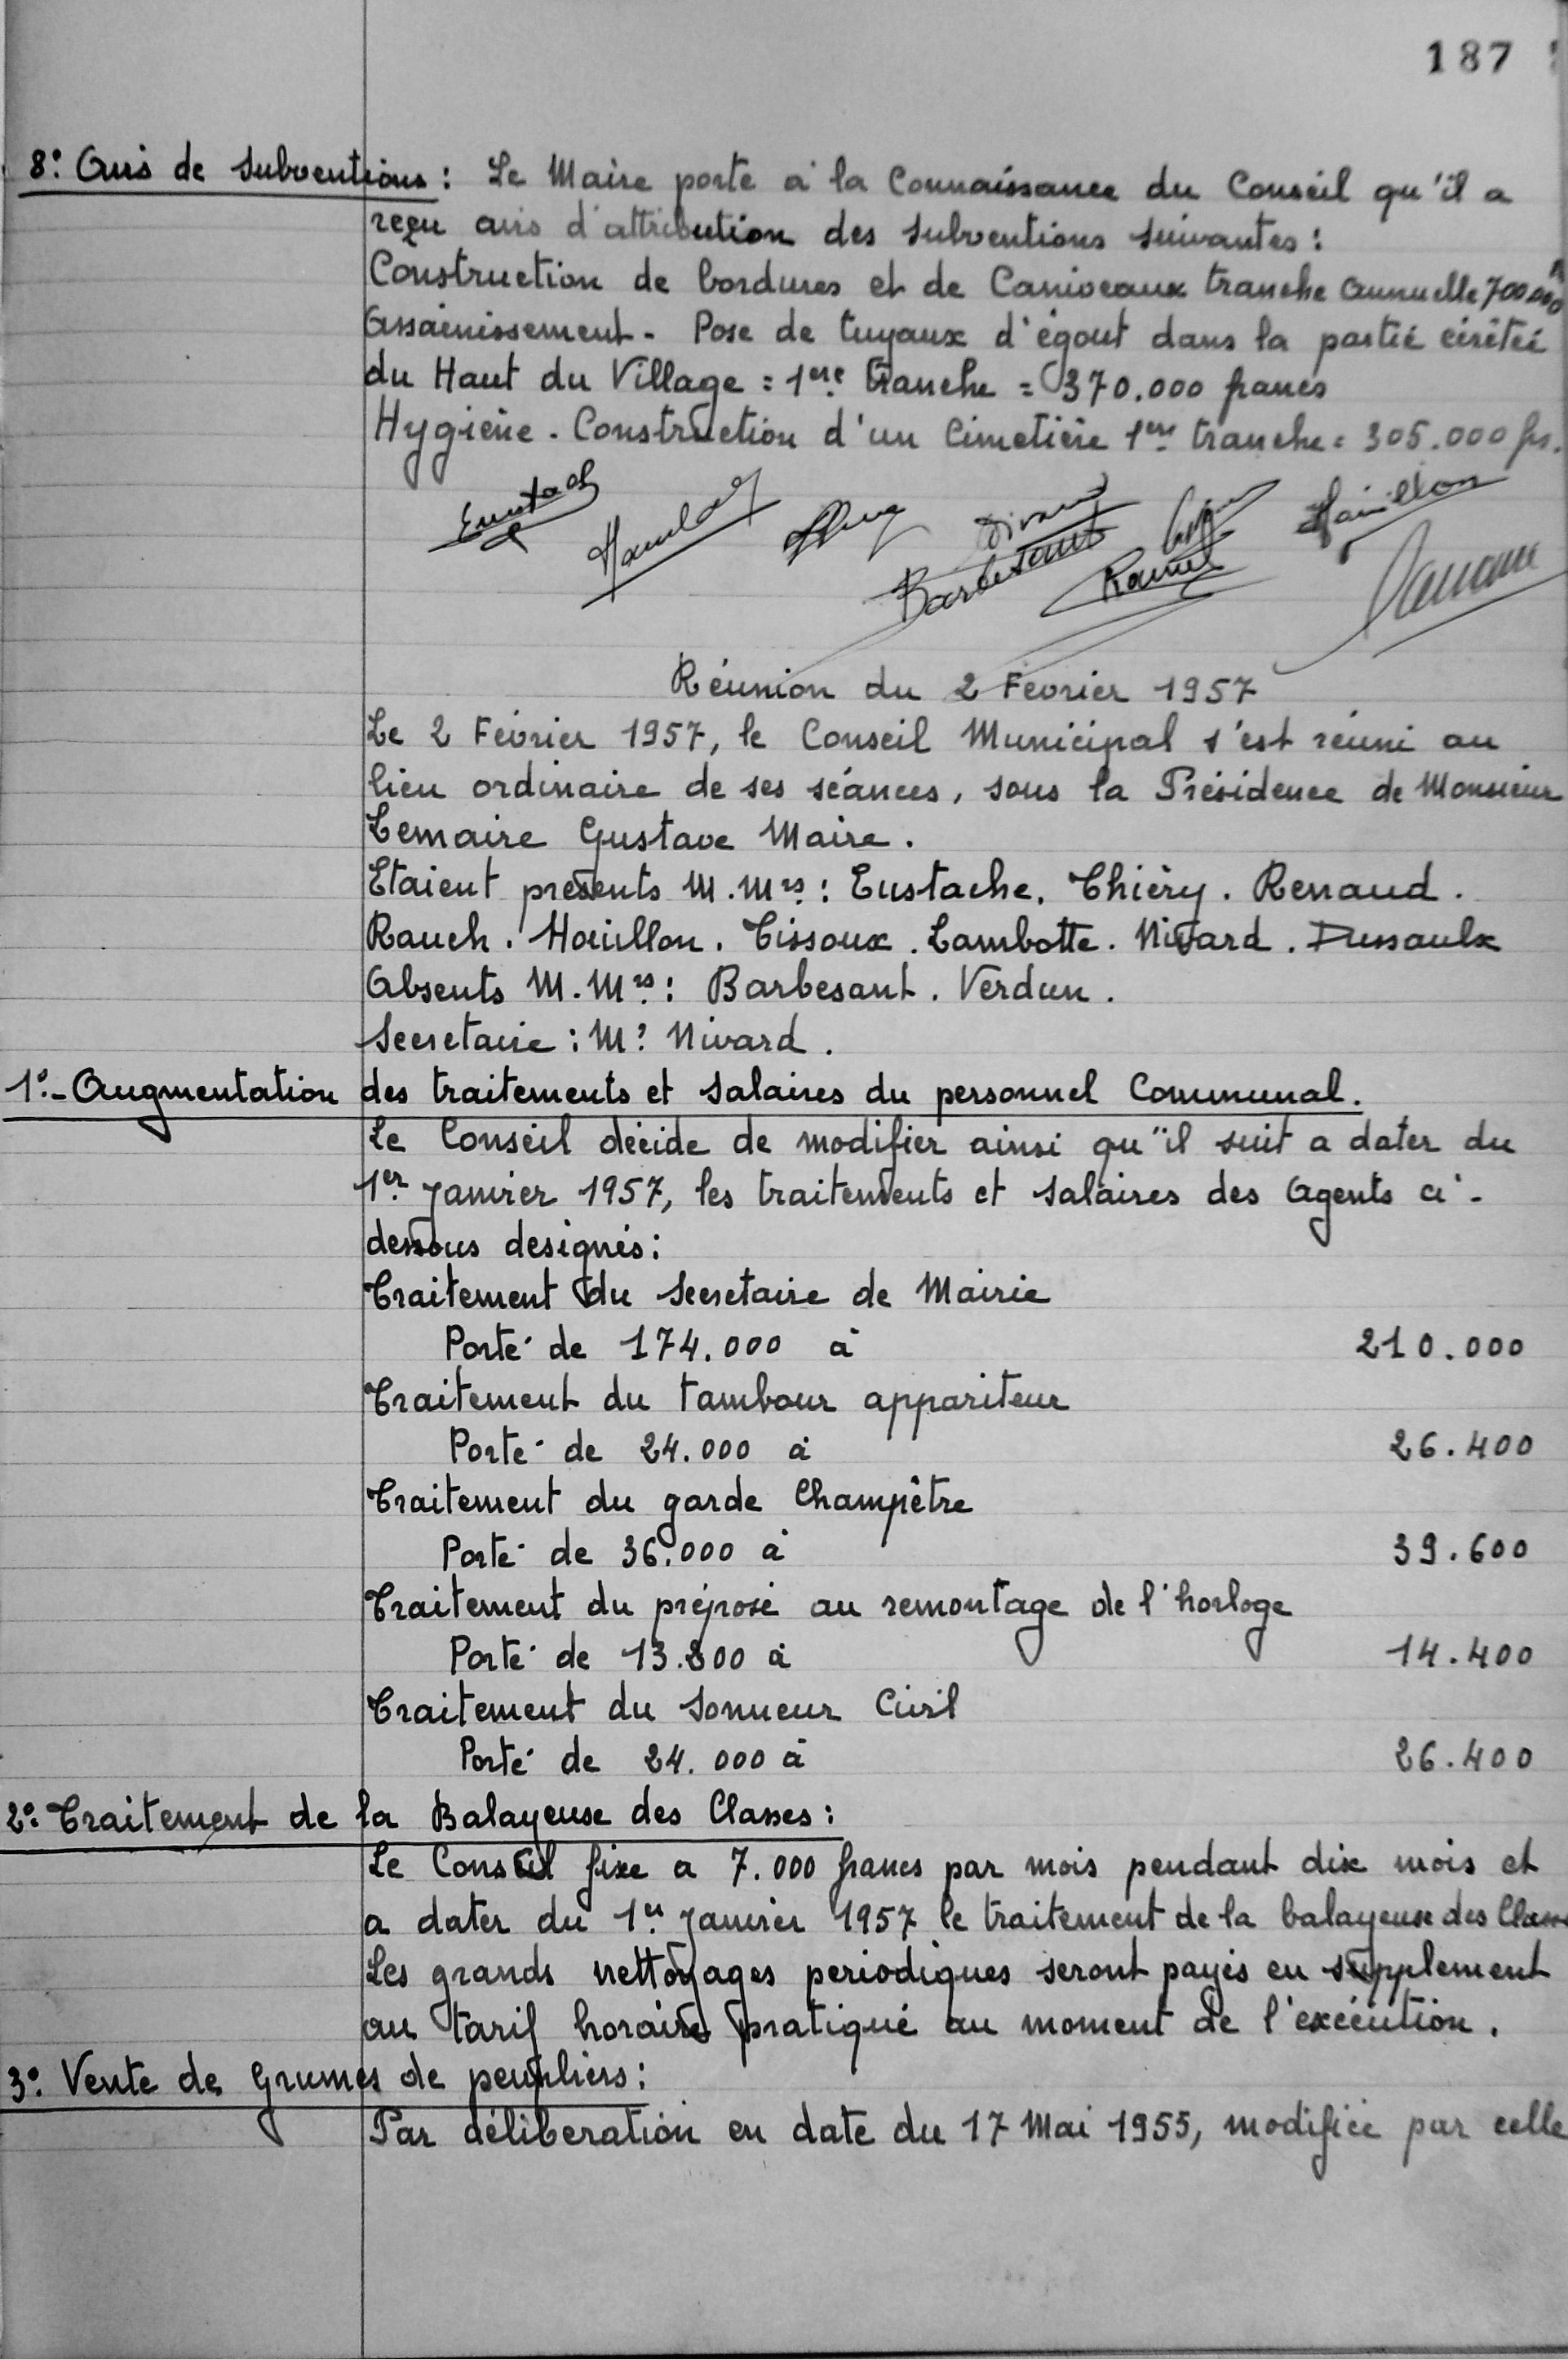 187
8º: Avis de Subventions : Le Maire porte à la Connaissance du Conseil qu'il a
reçu avis d'attribution des Subventions suivantes :
Construction de bordures et de Caniveaux tranche Annuelle 700.000
Assainissement - Pose de tuyaux d'égout dans la partie
du Haut du Village = 1ere tranche = 370.000 francs
Hygiène. Construction d'un Cimetière 1ere tranche = 305.000 frs.
Eustach
Barbesant
Houillon
Réunion du 2 Fevrier 1957
Le 2 Février 1957, le Conseil Municipal s'est réuni au
lieu ordinaire de ses séances, sous la Présidence de Monsieur
Lemaire Gustave Maire.
Etaient présents M.Mrs : Eustache. Thiéry. Renaud.
Rauch. Houillon. Tissoux. Lambotte. Nivard. Dussaulx
Absents M.Mrs : Barbesant. Verdun.
Secretaire : Mr Nivard.
1º.- Augmentation des traitements et Salaires du personnel Communal.
Le Conseil décide de modifier ainsi qu"il suit a dater du
1er Janvier 1957, les traitements et Salaires des Agents ci-
dessous designés :
Traitement du Secretaire de Mairie
Porté de 174.000 à 210.000
Traitement du tambour appariteur
Porté de 24.000 à 26.400
Traitement du garde Champêtre
Porté de 36.000 à 39.600
Traitement du préposé au remontage de l'horloge
Porté de 13.800 à 14.400
Traitement du Sonneur Civil
Porté de 24.000 à 26.400
2º: Traitement de la Balayeuse des Classes :
Le Conseil fixe a 7.000 francs par mois pendant dix mois et
a dater du 1er Janvier 1957 le traitement de la balayeuse des Classes
Les grands nettoyages periodiques seront payés en supplement
au tarif horaire pratiqué au moment de l'exécution.
3º: Vente de Grumes de peupliers :
Par délibération en date du 17 Mai 1955, modifiée par celle